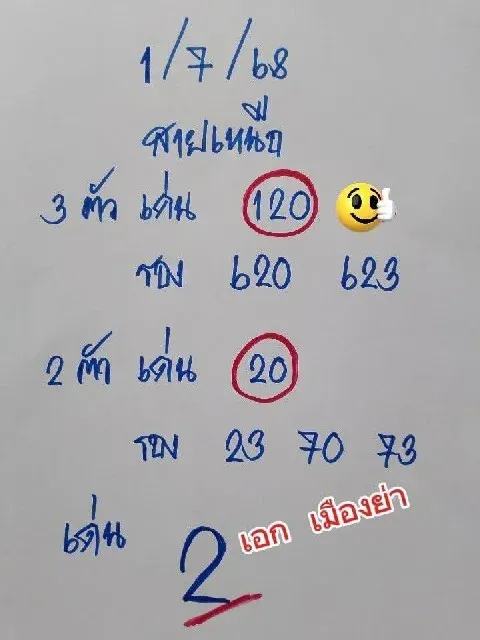 1/7/68
สายเหนือ
3 ตัว เด่น 120
รอง 620 623
2 ตัว เด่น 20
รอง 23 70 73
เด่น 2
เอก เมืองย่า